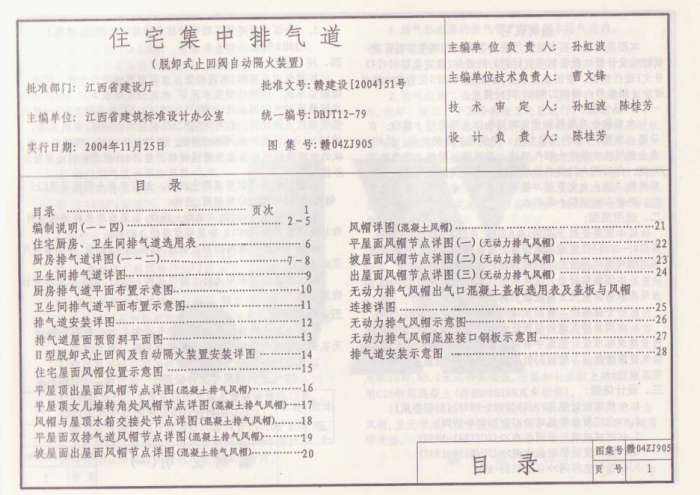 住宅集中排气道
(脱卸式止回阀自动隔火装置)
批准部门: 江西省建设厅 批准文号: 赣建设[2004]51号
主编单位: 江西省建筑标准设计办公室 统一编号: DBJT12-79
实行日期: 2004年11月25日 图 集 号: 赣04ZJ905
主编单位负责人: 孙红波
主编单位技术负责人: 曹文锋
技术审定人: 孙红波 陈桂芳
设计负责人: 陈桂芳
目 录
目录 ………………………… 页次 1
编制说明(一~四)……………………2~5
住宅厨房、卫生间排气道选用表…………………6
厨房排气道详图(一~二)……………………7~8
卫生间排气道详图……………………………9
厨房排气道平面布置示意图…………………10
卫生间排气道平面布置示意图………………11
排气道安装详图………………………………12
排气道屋面预留洞平面图……………………13
II型脱卸式止回阀及自动隔火装置安装详图……14
住宅屋面风帽位置示意图……………………15
平屋顶出屋面风帽节点详图(混凝土排气风帽)………16
平屋顶女儿墙转角处风帽节点详图(混凝土排气风帽)……17
风帽与屋顶水箱交接处节点详图(混凝土排气风帽)……18
平屋面双排气道风帽节点详图(混凝土排气风帽)………19
坡屋面出屋面风帽节点详图(混凝土排气风帽)………20
风帽详图(混凝土风帽)……………………………21
平屋面风帽节点详图(一)(无动力排气风帽)…………22
坡屋面风帽节点详图(二)(无动力排气风帽)…………23
出屋面风帽节点详图(三)(无动力排气风帽)…………24
无动力排气风帽出气口混凝土盖板选用表及盖板与风帽
连接详图……………………………………25
无动力排气风帽示意图………………………26
无动力排气风帽底座接口钢板示意图…………27
排气道安装示意图……………………………28
目 录
图集号 赣04ZJ905
页 号 1